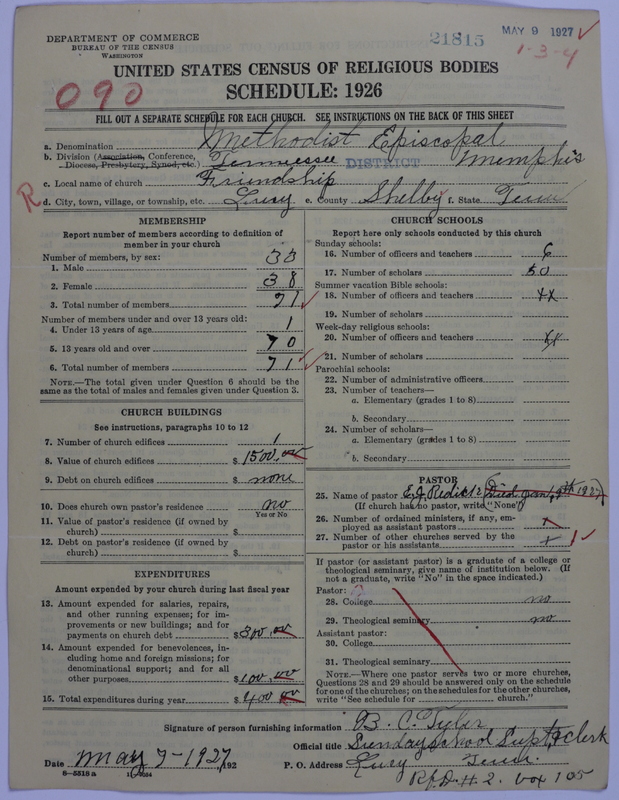 DEPARTMENT OF COMMERCE
BUREAU OF THE CENSUS
WASHINGTON
21815
MAY 9 1927
1-3-4
090
UNITED STATES CENSUS OF RELIGIOUS BODIES
SCHEDULE: 1926
FILL OUT A SEPARATE SCHEDULE FOR EACH CHURCH. SEE INSTRUCTIONS ON THE BACK OF THIS SHEET
a. Denomination Methodist Episcopal
b. Division (Association, Conference, Diocese, Presbytery, Synod, etc.) Tennessee DISTRICT Memphis
c. Local name of church Friendship
R d. City, town, village, or township, etc. Lucy e. County Shelby f. State Tenn
MEMBERSHIP
Report number of members according to definition of
member in your church
Number of members, by sex:
1. Male 33
2. Female 38
3. Total number of members 71
Number of members under and over 13 years old:
4. Under 13 years of age 1
5. 13 years old and over 70
6. Total number of members 71
NOTE.—The total given under Question 6 should be the
same as the total of males and females given under Question 3.
CHURCH BUILDINGS
See instructions, paragraphs 10 to 12
7. Number of church edifices 1
8. Value of church edifices $ 1500.00
9. Debt on church edifices $ none
10. Does church own pastor's residence no
Yes or No
11. Value of pastor's residence (if owned by
church) $
12. Debt on pastor's residence (if owned by
church) $
EXPENDITURES
Amount expended by your church during last fiscal year
13. Amount expended for salaries, repairs,
and other running expenses; for im-
provements or new buildings; and for
payments on church debt $ 300.00
14. Amount expended for benevolences, in-
cluding home and foreign missions; for
denominational support; and for all
other purposes $ 100.00
15. Total expenditures during year $ 400 00
CHURCH SCHOOLS
Report here only schools conducted by this church
Sunday schools:
16. Number of officers and teachers 6
17. Number of scholars 50
Summer vacation Bible schools:
18. Number of officers and teachers xx
19. Number of scholars
Week-day religious schools:
20. Number of officers and teachers xx
21. Number of scholars
Parochial schools:
22. Number of administrative officers
23. Number of teachers—
a. Elementary (grades 1 to 8)
b. Secondary
24. Number of scholars—
a. Elementary (grades 1 to 8)
b. Secondary
PASTOR
25. Name of pastor E. J. (Died Jan 1927)
(If church has no pastor, write "None")
26. Number of ordained ministers, if any, em-
ployed as assistant pastors x
27. Number of other churches served by the
pastor or his assistants x 1
If pastor (or assistant pastor) is a graduate of a college or
theological seminary, give name of institution below. (If
not a graduate, write "No" in the space indicated.)
Pastor:
28. College no
29. Theological seminary no
Assistant pastor:
30. College
31. Theological seminary
NOTE.—Where one pastor serves two or more churches,
Questions 28 and 29 should be answered only on the schedule
for one of the churches; on the schedules for the other churches,
write "See schedule for church."
Signature of person furnishing information B. C. Tyler
Official title Sunday School Supt & clerk
Date May 7-1927, 192 P. O. Address Lucy Tenn.
R.f.D. #. 2. box 105